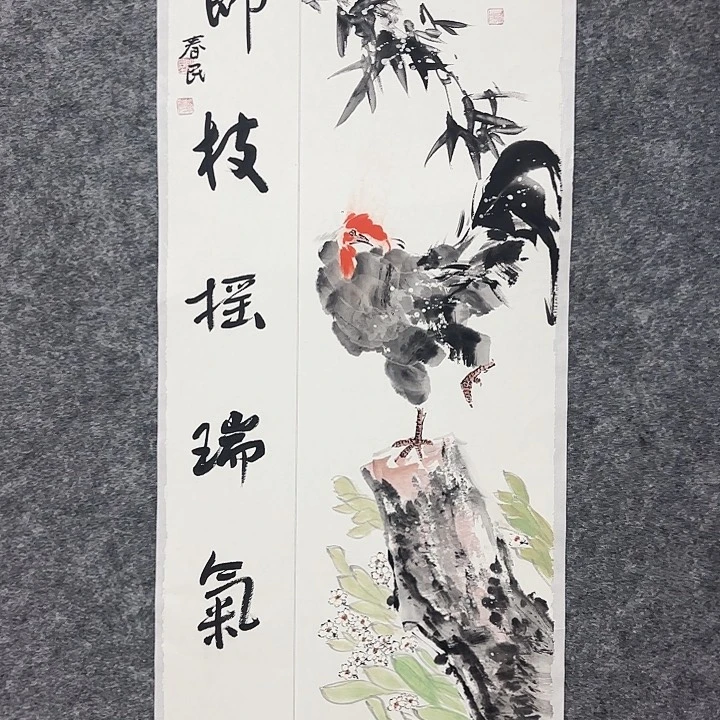 枝摇瑞氣
春民